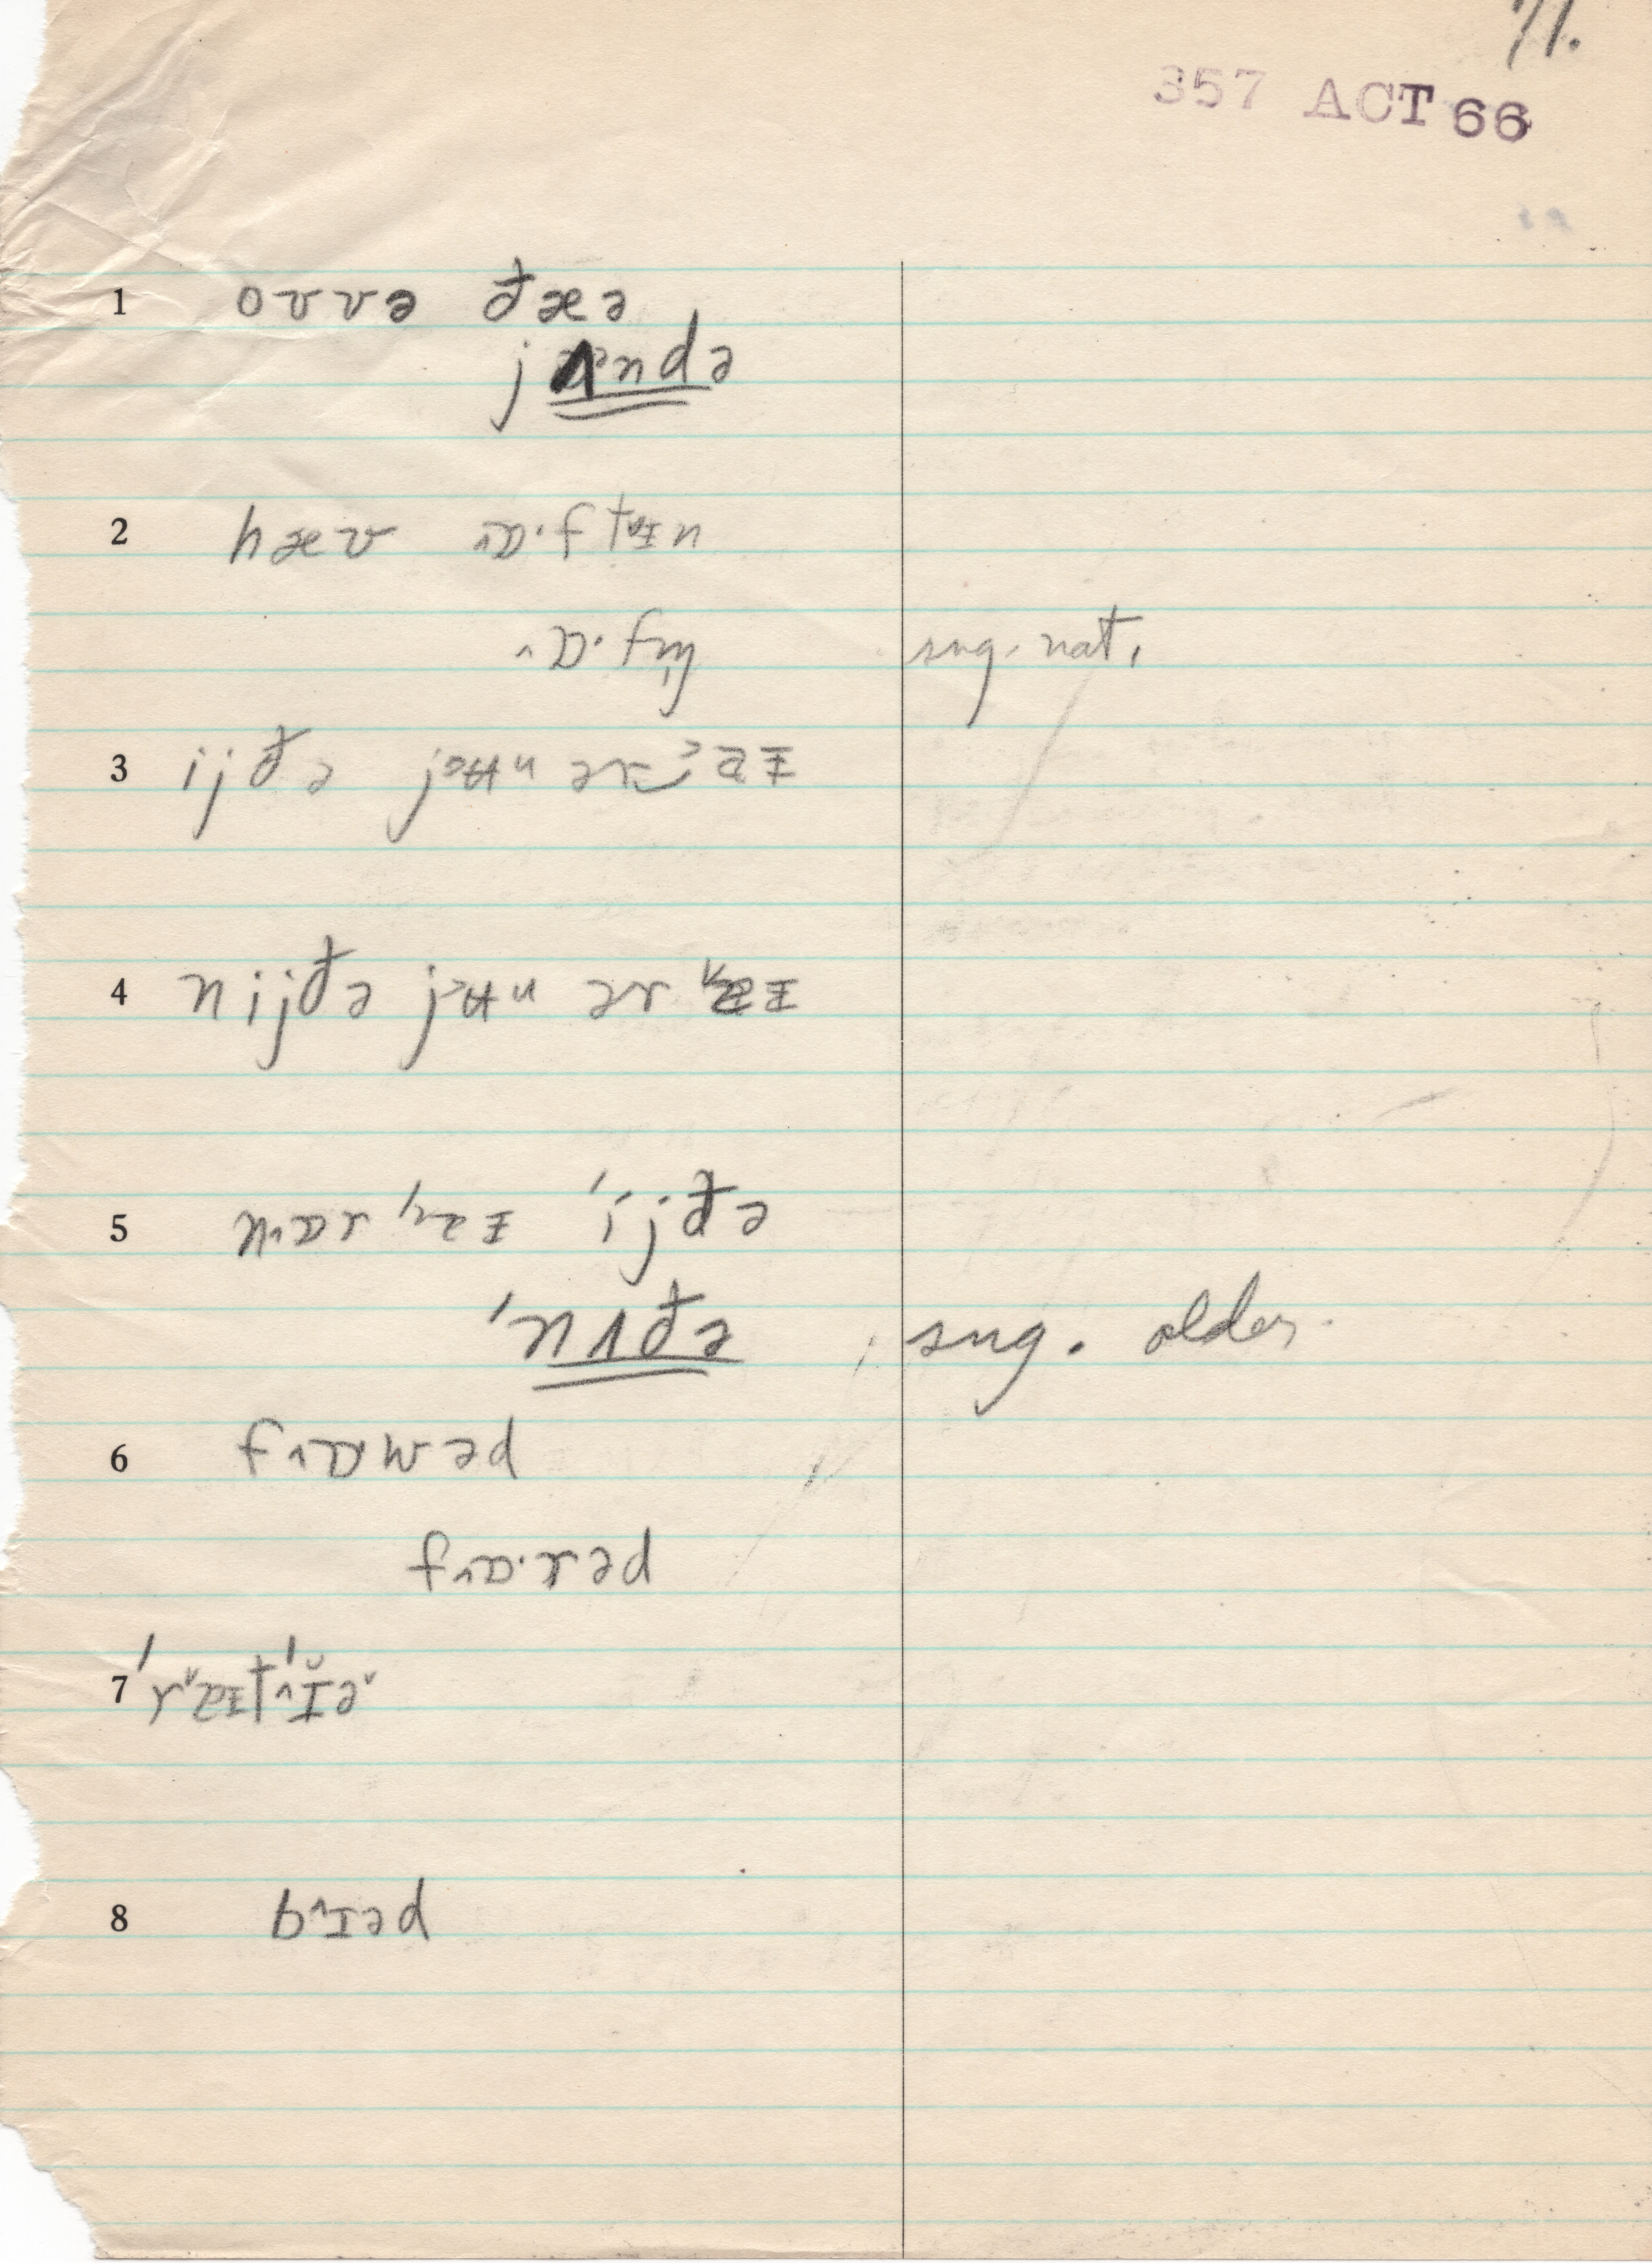 71.
357 ACT 66
1 ovvə ðæə
jʌndə
2 hæv ɒ·ftɨn
ɒ·fn̩ sug. nat.
3 ijðə jʉu ər ɐɨ
4 nijðə jʉu ər ɐɨ
5 nɒr 'ɐɨ 'ijðə
'nʌðə sug. older.
6 fɒwəd
fɒ·rəd
7 'rɐɨt'ɪ̆ə
8 bɪəd